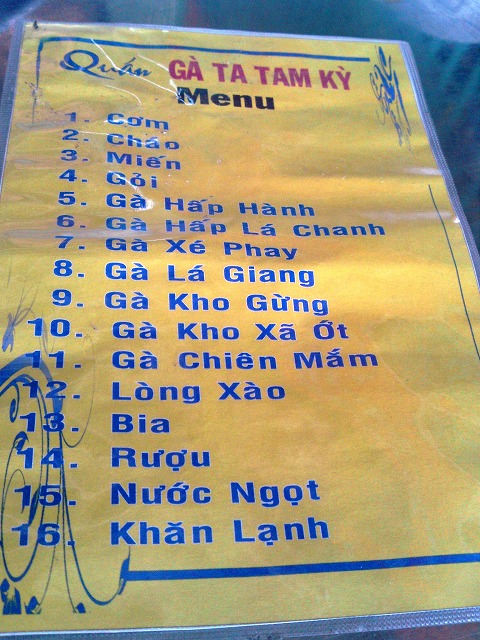 Quán GÀ TA TAM KỲ
Menu
1. Cơm
2. Cháo
3. Miến
4. Gỏi
5. Gà Hấp Hành
6. Gà Hấp Lá Chanh
7. Gà Xé Phay
8. Gà Lá Giang
9. Gà Kho Gừng
10. Gà Kho Xã Ớt
11. Gà Chiên Mắm
12. Lòng Xào
13. Bia
14. Rượu
15. Nước Ngọt
16. Khăn Lạnh